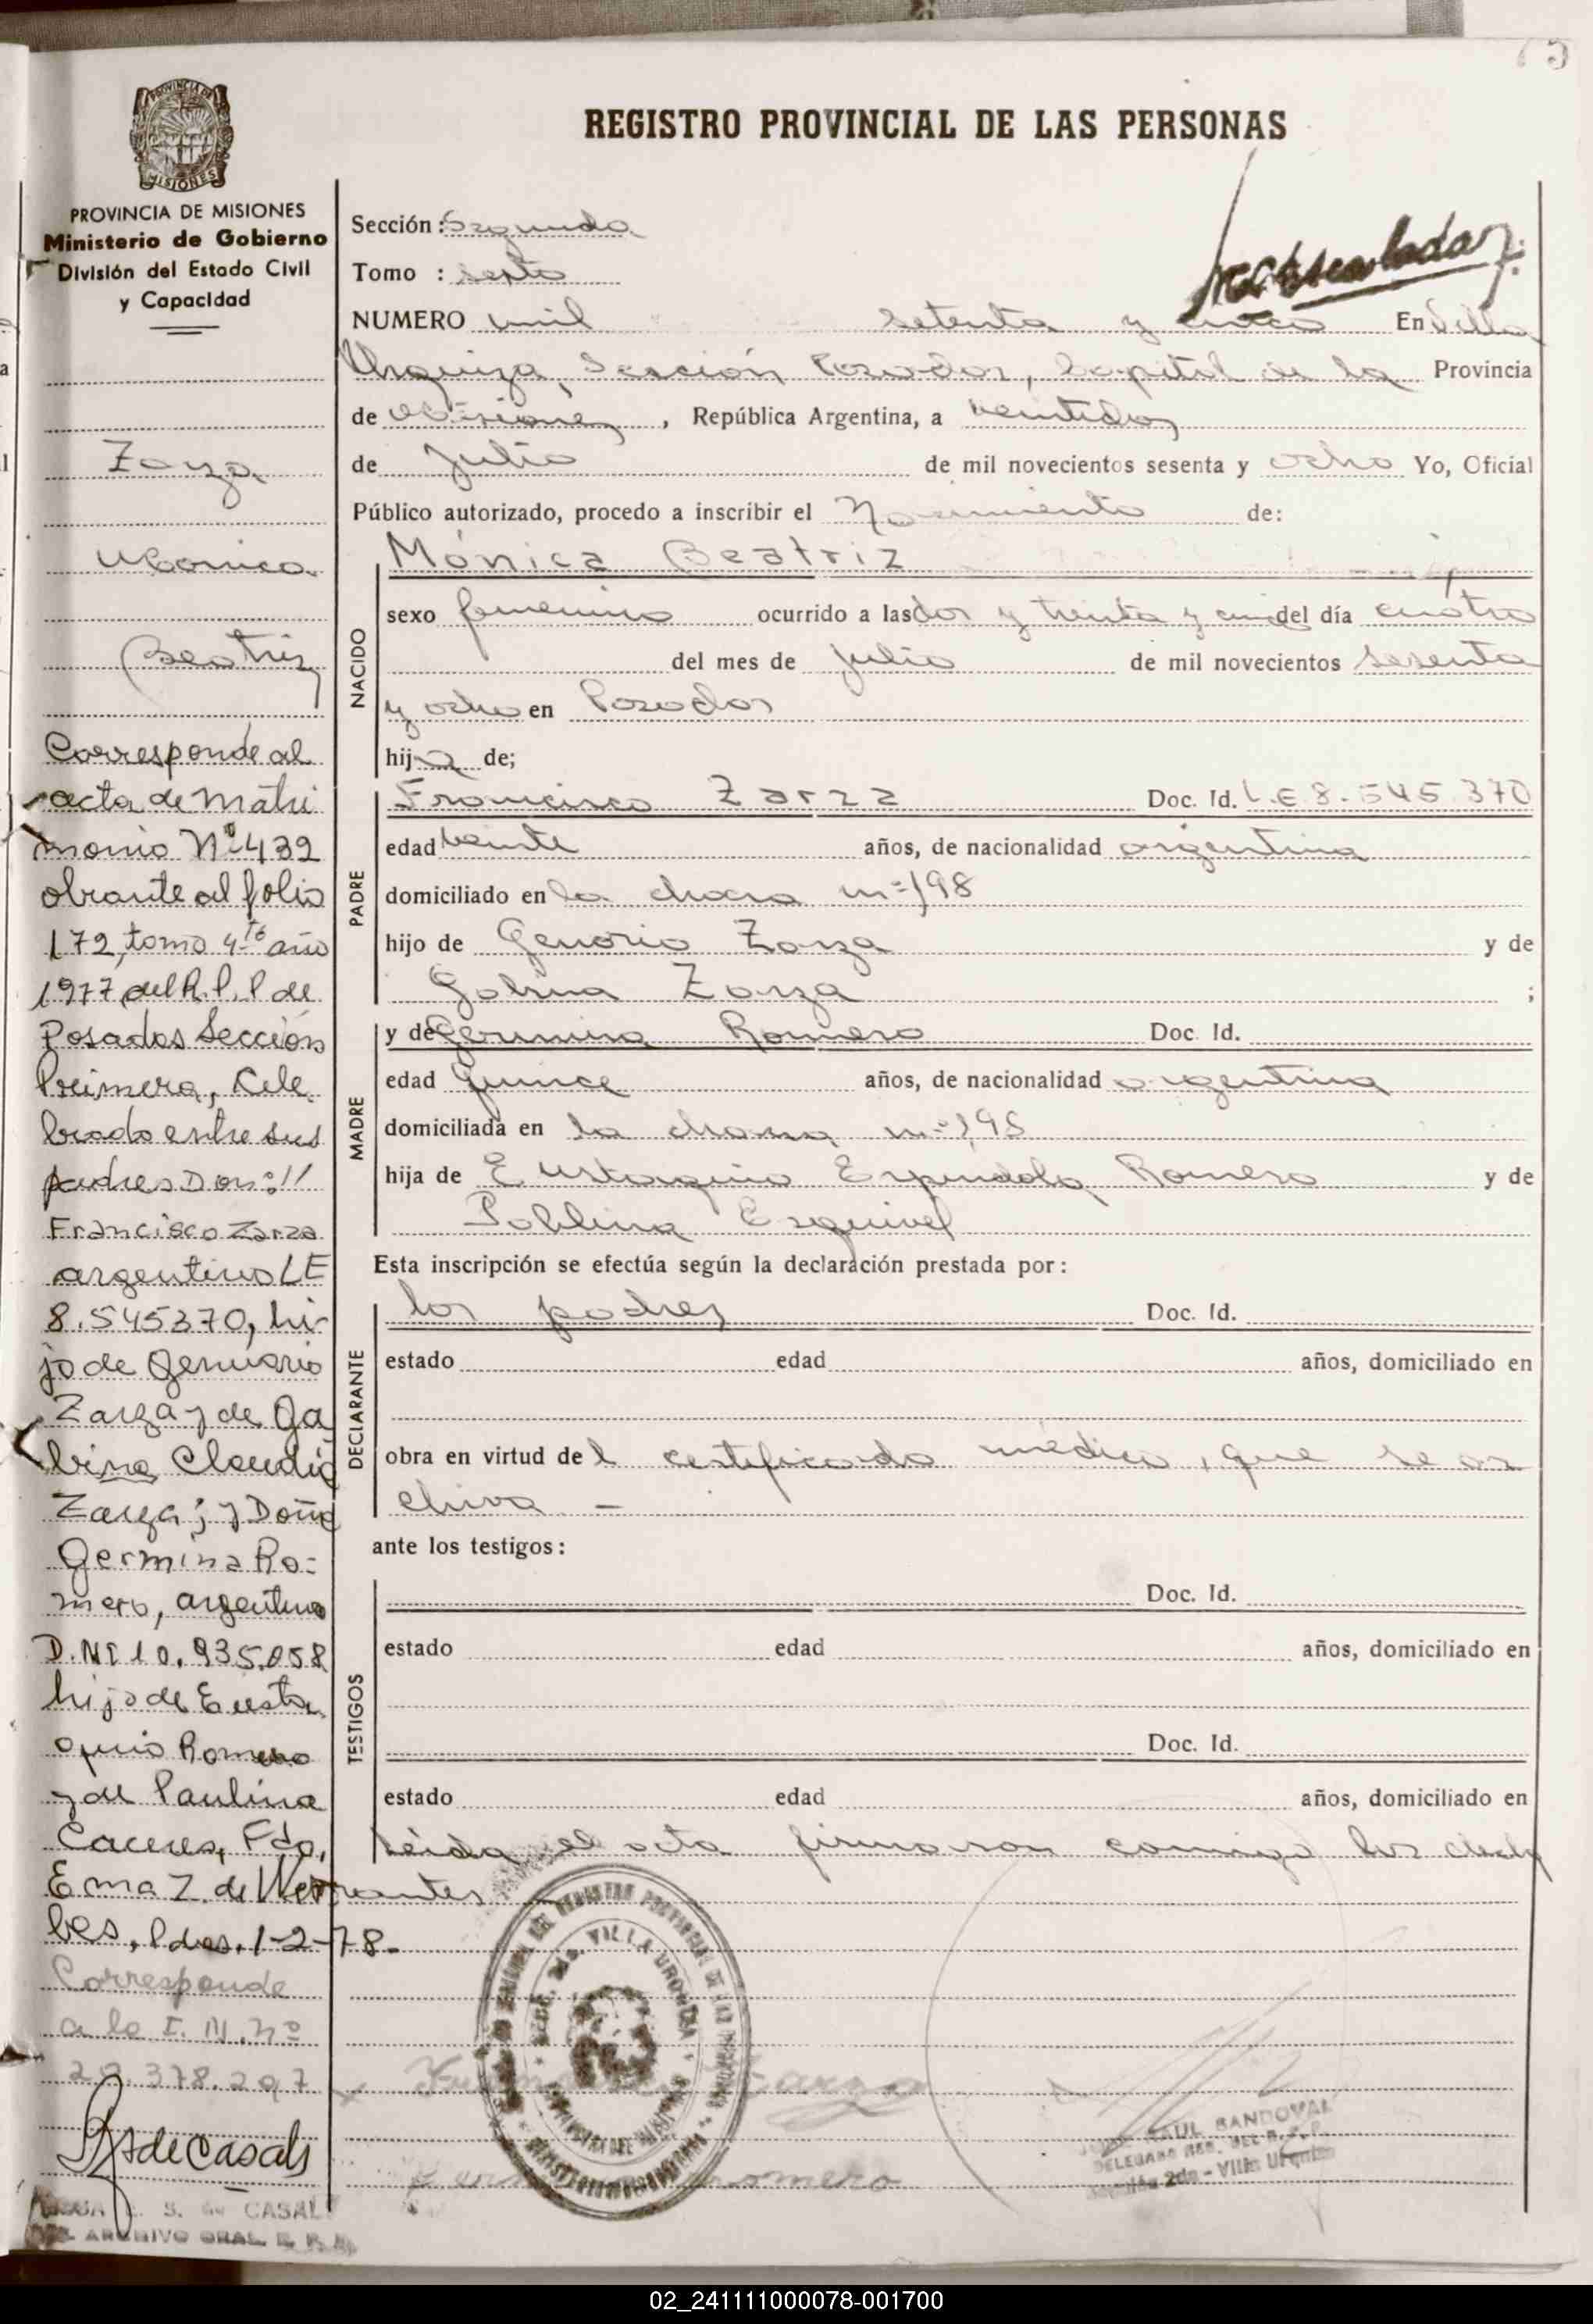 REGISTRO PROVINCIAL DE LAS PERSONAS
PROVINCIA DE MISIONES
Ministerio de Gobierno
División del Estado Civil
y Capacidad
Zarza
Monica
Beatriz
Corresponde al
acta de matri
monio Nº 432
obrante al folio
172, tomo 4to año
1977 del R.P.P de
Posadas Sección
Primera, Cele
brado entre sus
padres Don:!!
Francisco Zarza
argentino LE
8.545370, hi-
jo de Genuario
Zarza y de Ga
bina Claudia
Zarza; y Doña
Germina Ro=
mero, argentina
D.NI 10.935.058
hija de Eusta
quio Romero
y de Paulina
Caceres, Fdo,
Ema Z. de
bes, Pdas. 1-2-78.
Corresponde
a la I. N. nº
20.378.297
de Casals
S. de CASAL
ARCHIVO GRAL. R. P.
Sección : Segunda
Tomo : Sexto
NUMERO mil setenta y cinco En Villa
Urquiza, Sección Posadas, Capital de la Provincia
de Misiones, República Argentina, a veintidos
de Julio de mil novecientos sesenta y ocho Yo, Oficial
Público autorizado, procedo a inscribir el Nacimiento de:
NACIDO
Mónica Beatriz
sexo femenino ocurrido a las dos y treinta y cinco del día cuatro
del mes de Julio de mil novecientos sesenta
y ocho en Posadas
hija de;
PADRE
Francisco Zarza Doc. Id. L.E 8.545.370
edad veinte años, de nacionalidad argentina
domiciliado en la chacra nº 198
hijo de Genorio Zarza y de
Gabina Zarza ;
MADRE
y de Germina Romero Doc. Id.
edad Quince años, de nacionalidad argentina
domiciliada en la chacra nº 198
hija de Eustaquio Espíndola Romero y de
Poblina Esquivel
Esta inscripción se efectúa según la declaración prestada por:
DECLARANTE
los padres Doc. Id.
estado edad años, domiciliado en
obra en virtud del certificado médico, que se ar
chiva -
ante los testigos:
TESTIGOS
Doc. Id.
estado edad años, domiciliado en
Doc. Id.
estado edad años, domiciliado en
Leída el acta firmaron conmigo los decla
rantes
VILLA URQUIZA
Zarza
romero
RAUL SANDOVAL
DELEGADO
Sección 2da - Villa Urquiza
02_241111000078-001700